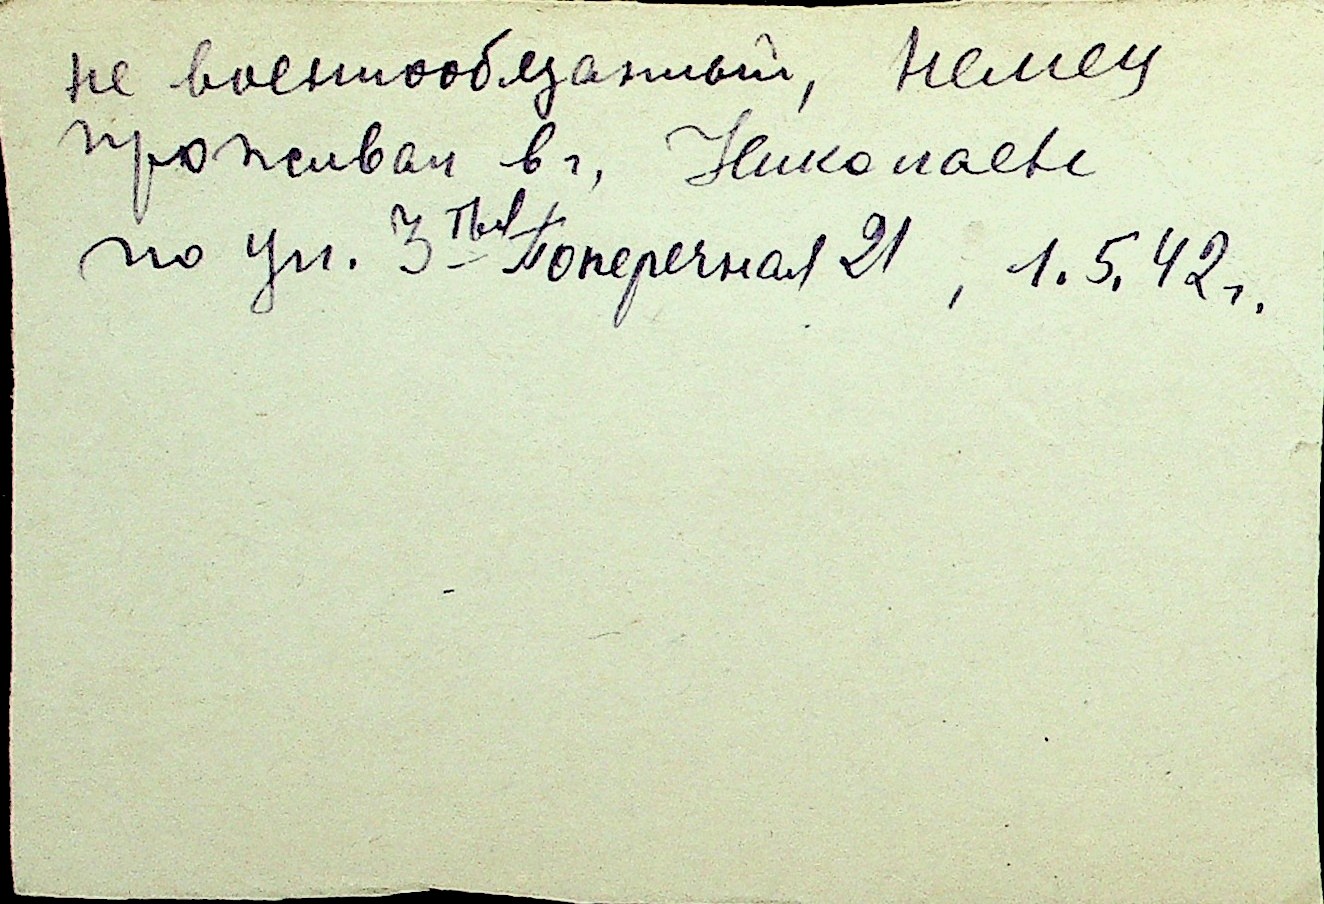 не военнообязанный, немец
проживал в г. Николаеве
по ул. 3тья Поперечная 21, 1.5.42 г.